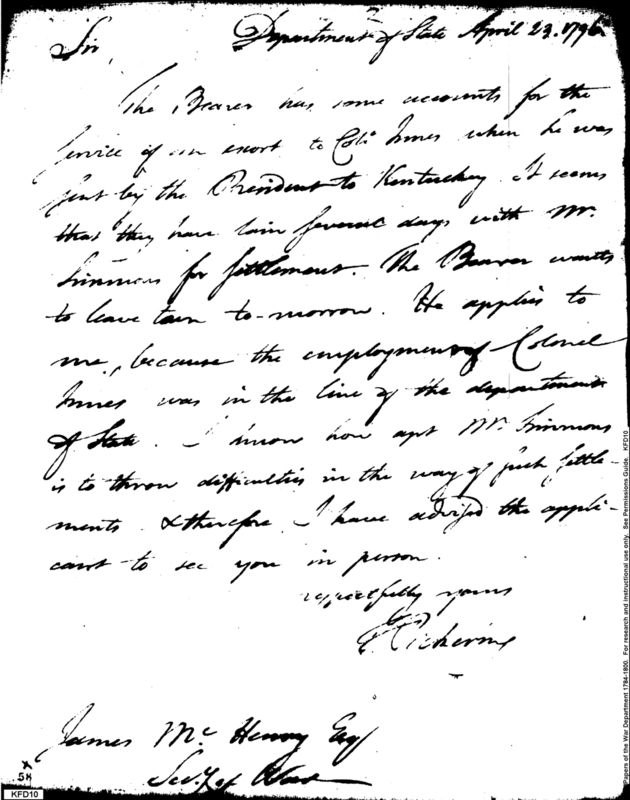 Department of State April 23. 1796
Sir,
The Bearer has some accounts for the
service of an escort to Colo. Innes when he was
sent by the President to Kentuckey. It seems
that they have lain several days with Mr.
Simmons for settlement. The Bearer wants
to leave town to-morrow. He applies to
me, because the employment of Colonel
Innes was in the line of the department
of State. I know how apt Mr. Simmons
is to throw difficulties in the way of such settle-
ments & therefore I have advised the appli-
cant to see you in person.
respectfully yours
T. Pickering
James Mc Henry Esq
Secy of War
5H
KFD10
Papers of the War Department 1784-1800. For research and instructional use only. See Permissions Guide. KFD10